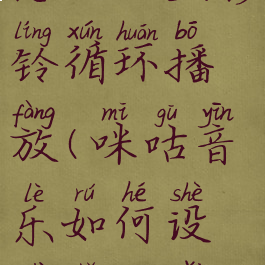 líng xún huán bō
铃循环播
fàng mī gū yīn
放(咪咕音
lè rú hé shè
乐如何设